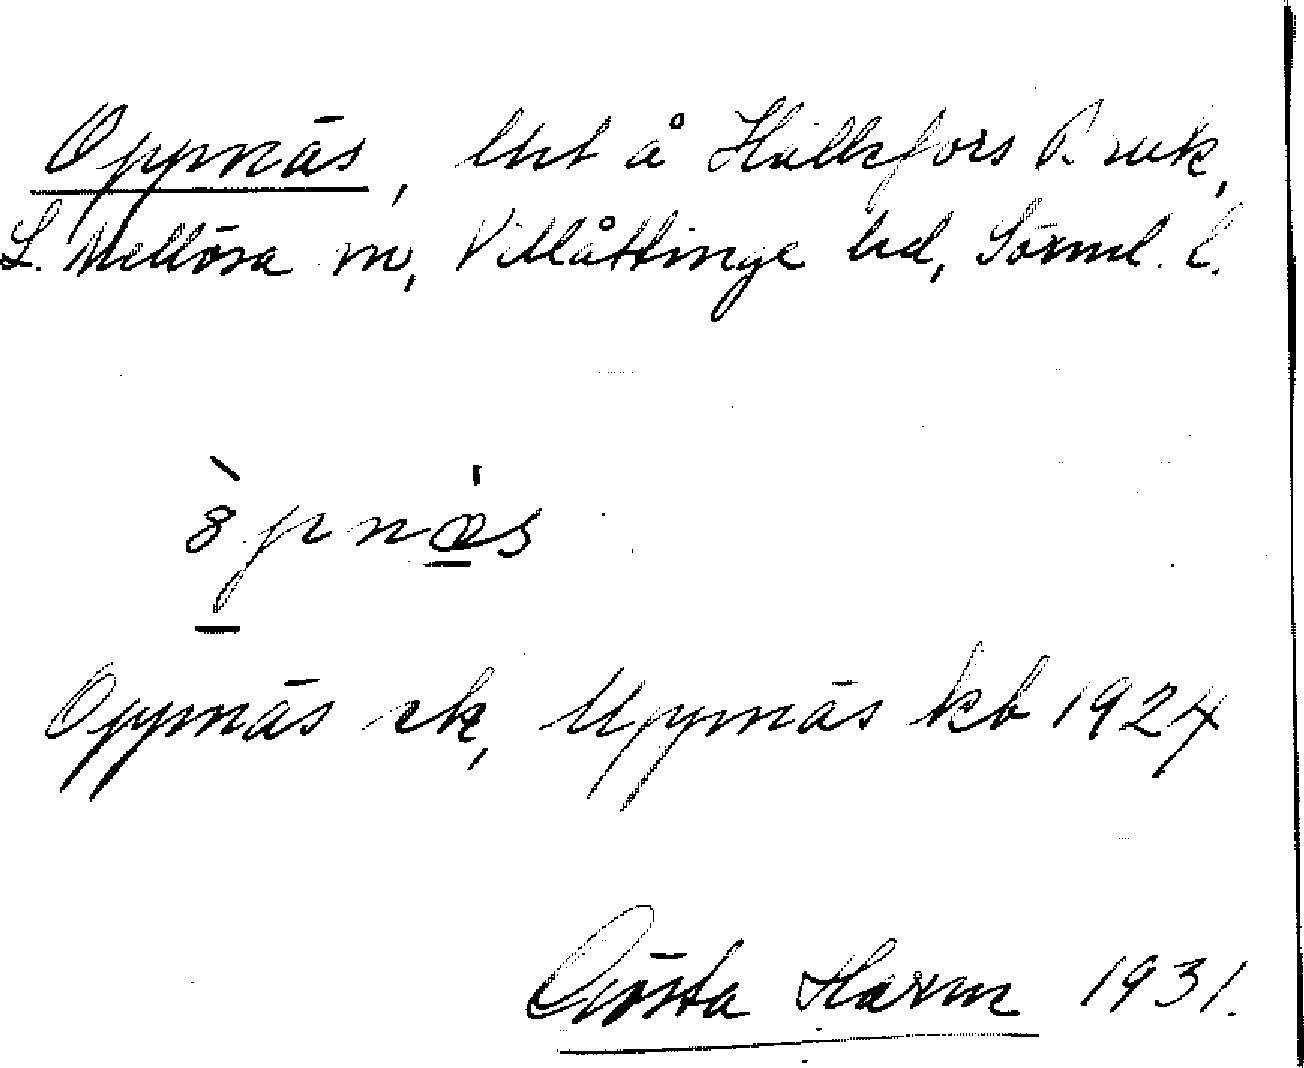 Oppnäs, lht å Hällefors Bruk,
L. Mellösa sn, Villåttinge hd, Sörml. l.
Oppnäs ek, Uppnäs kb 1924
Gösta Harm 1931.